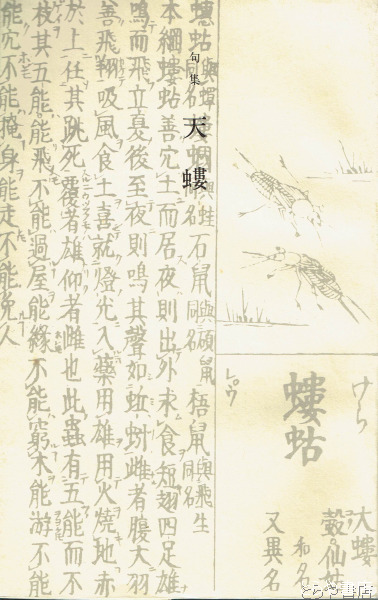 句集
天螻
けら
螻蛄
大螻
仙姑
和名
又異名
螻蛄 石鼠與碩鼠同名 梧鼠與飛生同名
本綱螻蛄善穴土而居夜則出外求食短翅四足雄
鳴而飛立夏後至夜則鳴其聲如蚯蚓雌者腹大羽
善飛翔吸風食土喜就燈光入藥用雄用火燒地赤
於上任其跳死覆者雄仰者雌也此蟲有五能而不
技其五能能飛不能過屋能緣不能窮木能游不能
能穴不能掩身能走不能免人
書店